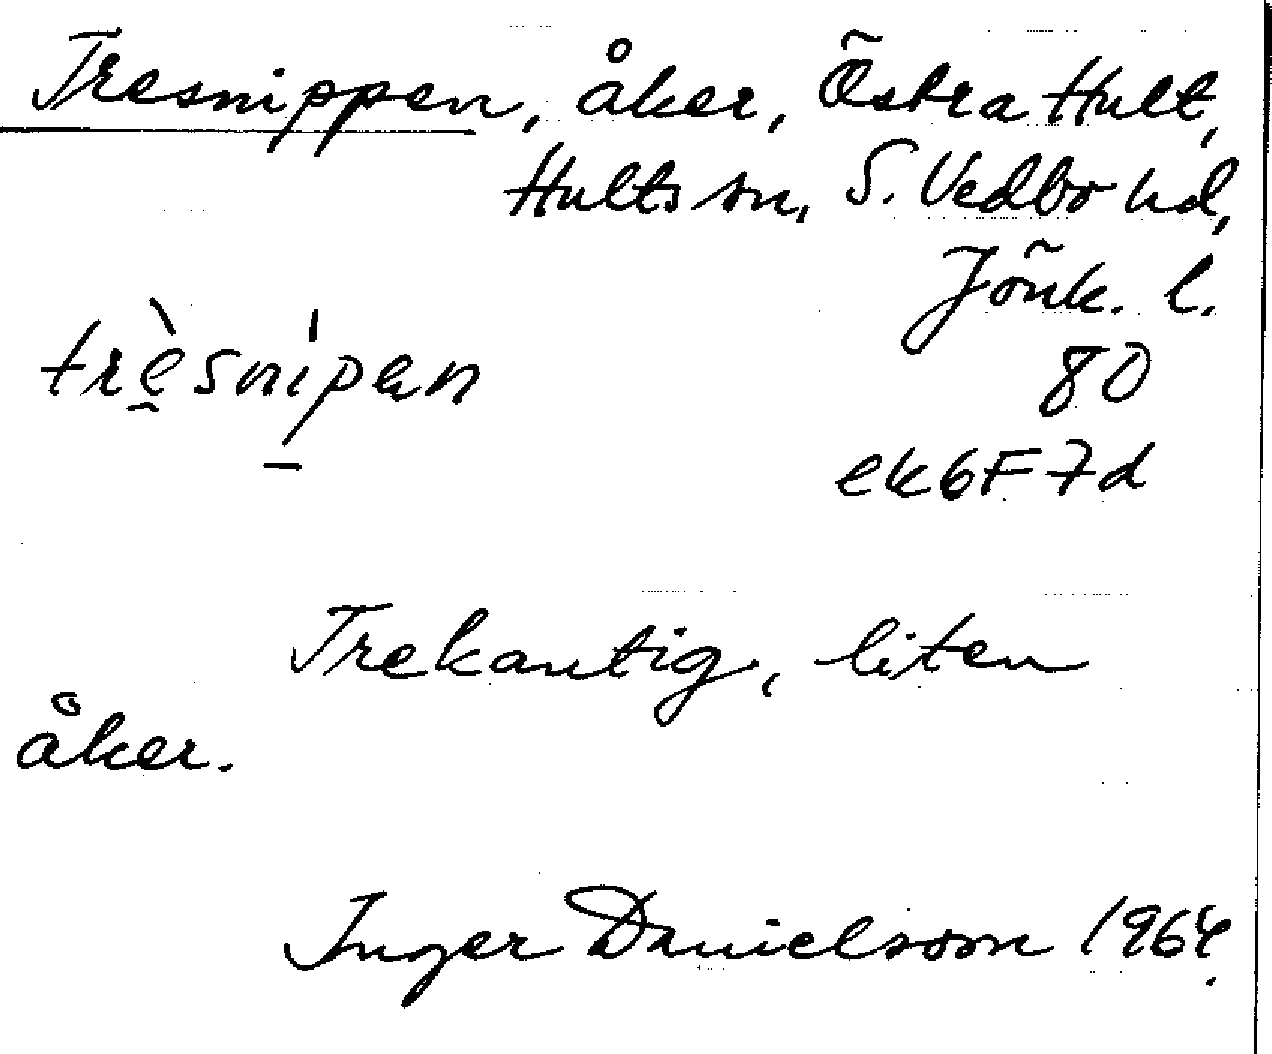 Tresnippen, åker, Östra Hult,
Hults sn, S. Vedbo hd,
Jönk. l.
trèsnipen
80
ek6F7d
Trekantig, liten
åker.
Inger Danielsson 1964.